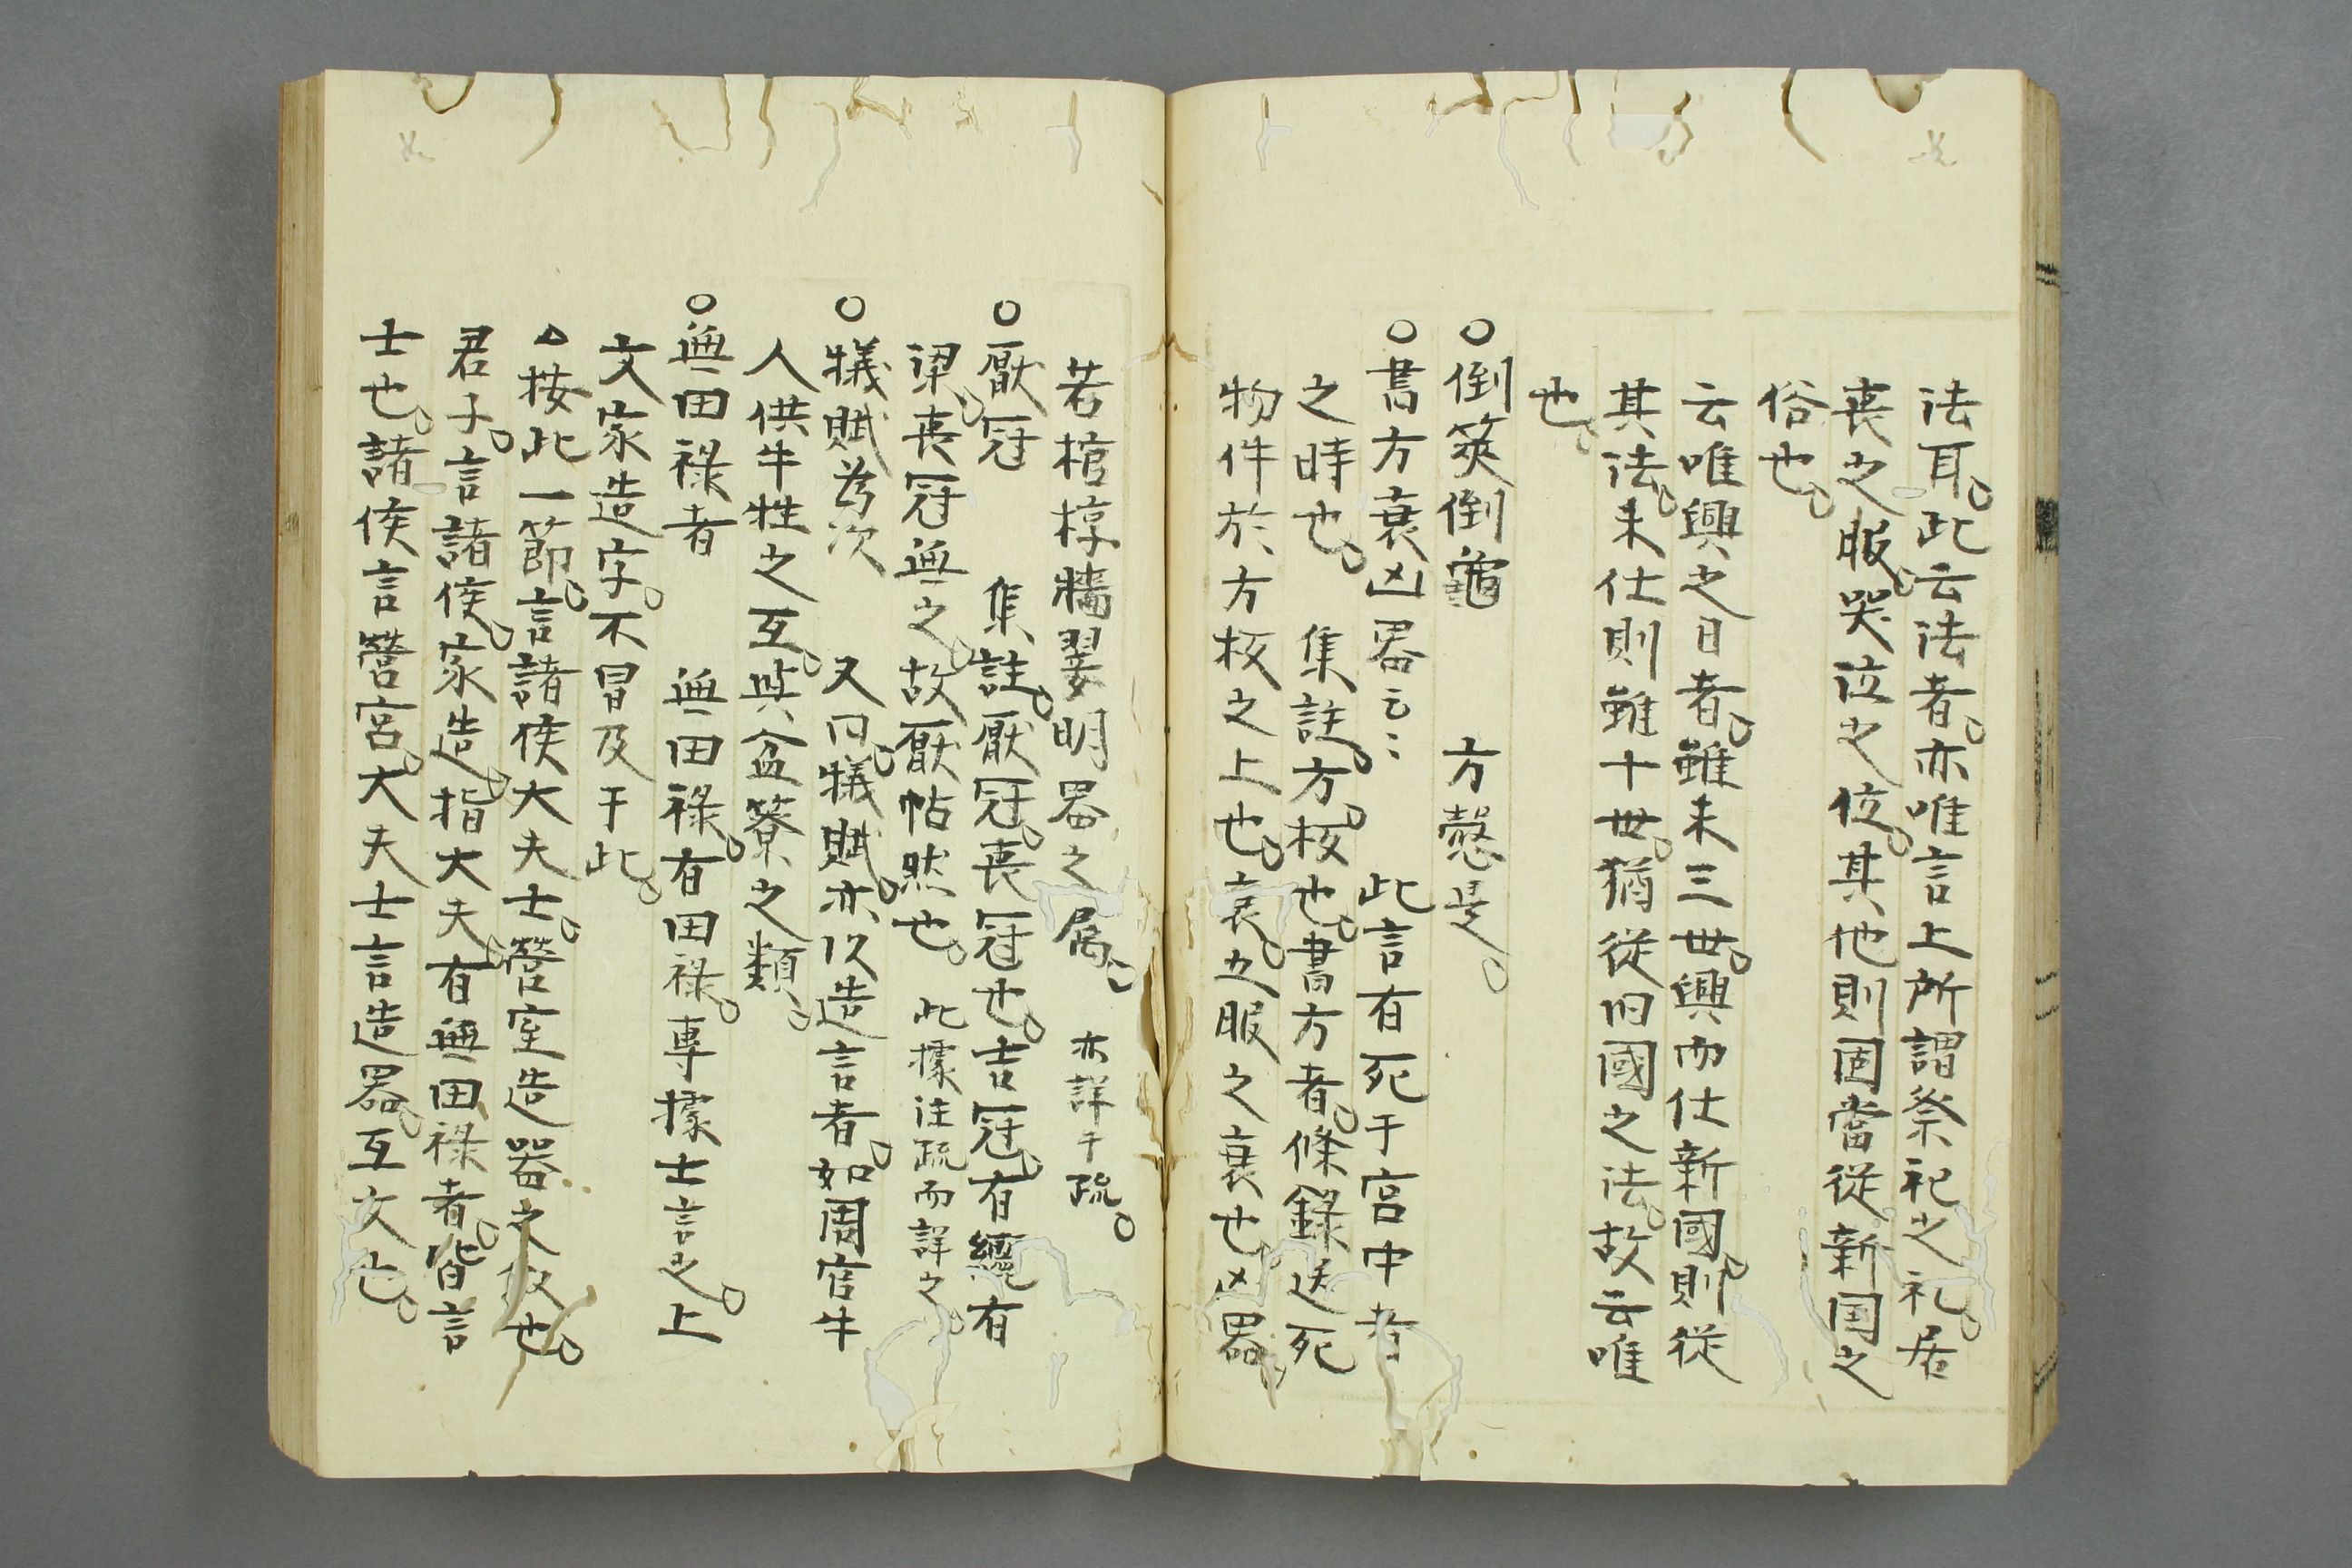 法耳。此云法者。亦唯言上所謂祭祀之礼。居
喪之服。哭泣之位。其他則固當從新国之
俗也。
云唯興之日者。雖未三世。興而仕新國。則從
其法。未仕則雖十世。猶從旧國之法。故云唯
也。
○倒筴倒龜　方慤是。
○書方衰凶器云〻　此言有死于宮中者
之時也。集註。方。板也。書方者。條錄送死
物件於方板之上也。衰。五服之衰也。凶器。
若棺椁牆翣明器之属。亦詳于疏。
○厭冠　集註。厭冠。喪冠也。吉冠。有纚有
梁。喪冠無之。故厭帖然也。此據注疏而詳之。
○犠賦爲次　又曰。犠賦。亦以造言者。如周官牛
人供牛牲之互。與盆簝之類。
○無田禄者　無田禄。有田禄。専據士言之。上
文家造字。不冒及于此。
△按此一節。言諸侯大夫士。營室造器之也。
君子。言諸侯。家造。指大夫。有無田禄者。皆言
士也。諸侯言營宮。大夫士言造器。互文也。